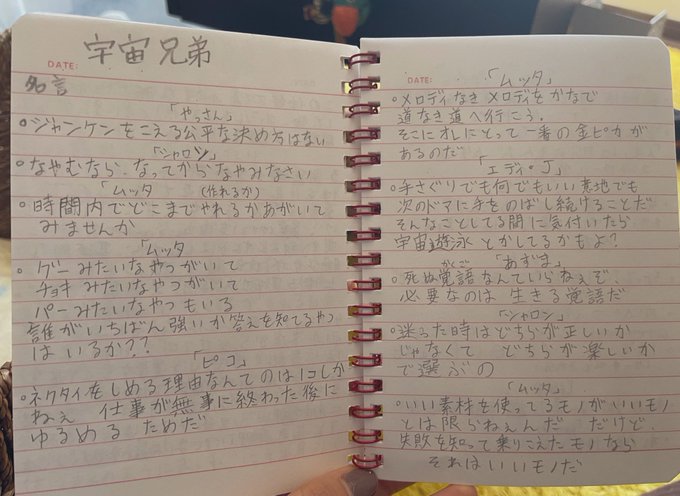 宇宙兄弟
DATE:
名言
「やっさん」
・ジャンケンをこえる公平な決め方はない
「シャロン」
・なやむなら、なってからなやみなさい
「ムッタ」 (作れるか)
・時間内でどこまでやれるかあがいて
みませんか
「ムッタ」
・グーみたいなやつがいて
チョキみたいなやつがいて
パーみたいなやつもいる
誰がいちばん強いか答えを知てるやつ
はいるか??
「ピコ」
・ネクタイをしめる理由なんてのは1コしか
ねぇ 仕事が無事に終わった後に
ゆるめる ためだ
DATE:
「ムッタ」
・メロディなき メロディをかなで
道なき道へ行こう.
そこにオレにとって一番の金ピカが
あるのだ
「エディ・J」
・手さぐりでも何でもいい意地でも
次のドアに手をのばし続けることだ
そんなことしてる間に気付いたら
宇宙遊泳とかしてるかもよ?
かくご 「あずま」
・死ぬ覚語なんていらねぇぞ.
必要なのは 生きる覚語だ
「シャロン」
・迷った時はどちらが正しいか
じゃなくて どちらが楽しいか
で選ぶの
「ムッタ」
・いい素材を使ってるモノがいいモノ
とは限らねぇんだ だけど.
失敗を知って乗りこえたモノなら
それはいいモノだ